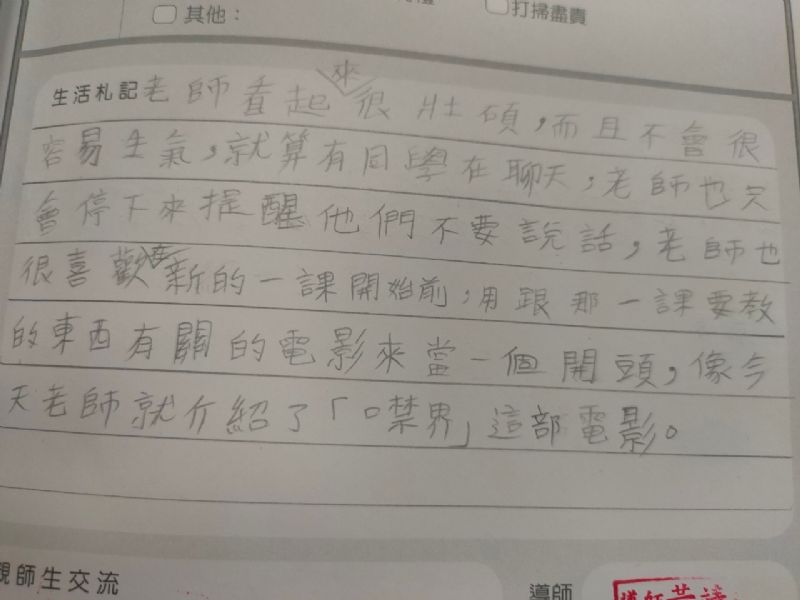 其他：
打掃盡責
生活札記老師看起來很壯碩，而且不會很
容易生氣，就算有同學在聊天，老師也只
會停下來提醒他們不要說話，老師也
很喜歡在新的一課開始前，用跟那一課要教
的東西有關的電影來當一個開頭，像今
天老師就介紹了「口禁界」這部電影。
親師生交流
導師